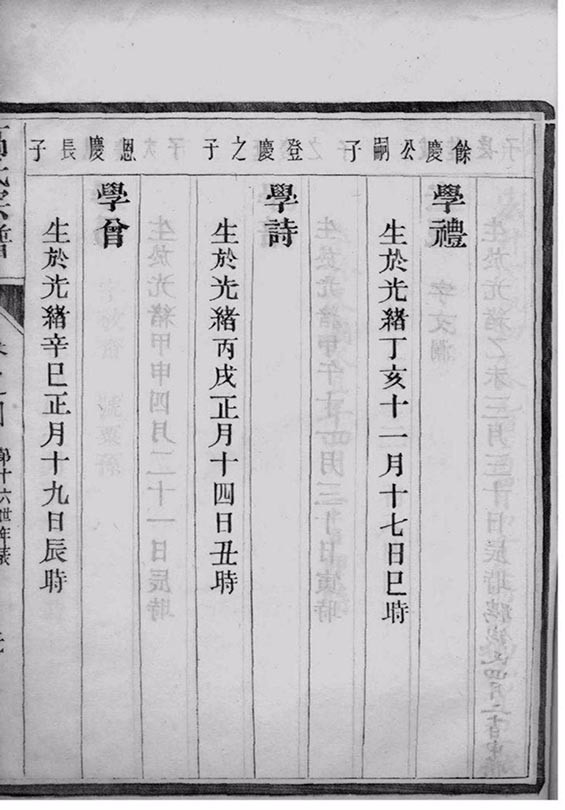 餘慶公嗣子
學禮
生於光緒丁亥十一月十七日巳時
登慶之子
學詩
生於光緒丙戌正月十四日丑時
恩慶長子
學曾
生於光緒辛巳正月十九日辰時
第十六世年表